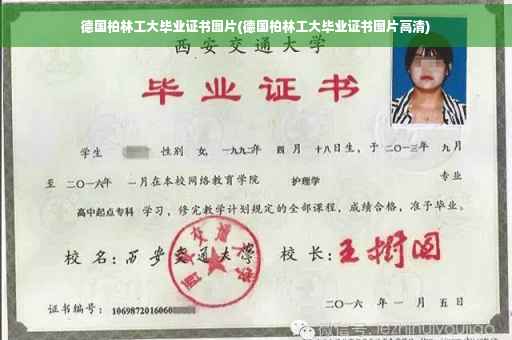 德国柏林工大毕业证书图片(德国柏林工大毕业证书图片高清)
西安交通大学
毕业证书
学生 性别 女, 一九九二年 四月 十八日生, 于 二〇一三年 九月
至 二〇一六年 一月在本校网络教育学院 护理学 专业
高中起点专科 学习, 修完教学计划规定的全部课程, 成绩合格, 准予毕业。
校 名: 西安交通大学 校 长: 王树国
西安交通大学
证书编号: 1069872016060
二〇一六 年 一 月 五 日
微信号: jezhihuiyoujiao